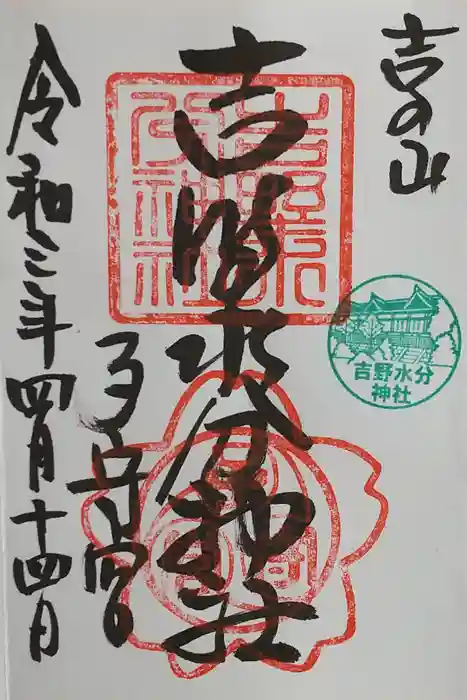 吉の山
吉野水分神社
子守宮
令和三年四月十四日
吉野水分神社
吉野水
分神社